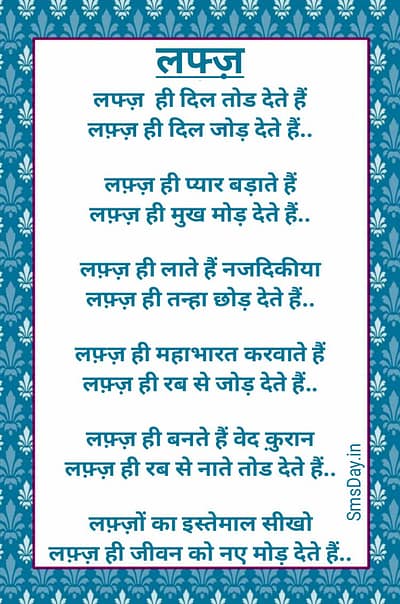 लफ्ज़
लफ्ज़ ही दिल तोड देते हैं
लफ़्ज़ ही दिल जोड़ देते हैं..
लफ़्ज़ ही प्यार बड़ाते हैं
लफ़्ज़ ही मुख मोड़ देते हैं..
लफ़्ज़ ही लाते हैं नजदिकीया
लफ़्ज़ ही तन्हा छोड़ देते हैं..
लफ़्ज़ ही महाभारत करवाते हैं
लफ़्ज़ ही रब से जोड़ देते हैं..
लफ़्ज़ ही बनते हैं वेद क़ुरान
लफ़्ज़ ही रब से नाते तोड देते हैं..
लफ़्ज़ों का इस्तेमाल सीखो
लफ़्ज़ ही जीवन को नए मोड़ देते हैं..
SmsDay.in